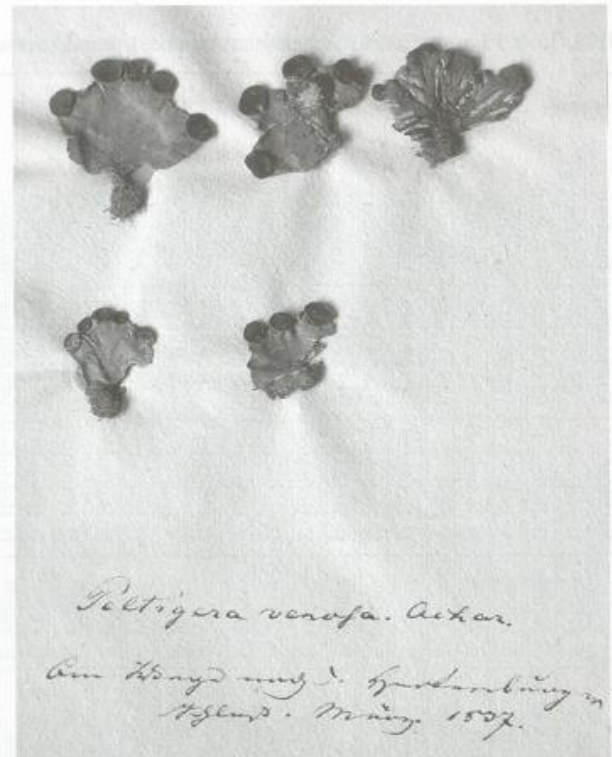 Peltigera venosa. Achar.
Am Wege nach d. Hartenburger
Schloß. März 1837.